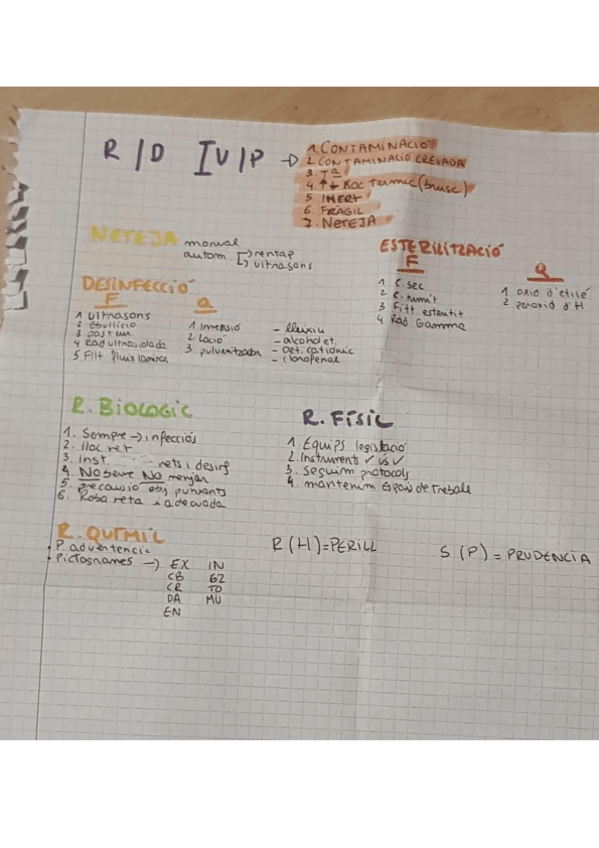 R/D IV/P →
1. CONTAMINACIÓ
2 CONTAMINACIÓ CREUADA
3. Tª
4. ↑↓ XOC TERMIC (brusc)
5 INERT
6. FRÀGIL
7. NETEJA
NETEJA manual
autom. rentap
ultrasons
DESINFECCIÓ
F
1 ultrasons
2 ebullició
3 pasteur.
4 Rad ultraviolada
5 Filt flux laminar
Q
1 Imersió
2 Loció
3 pulveritzador
- lleixiu
- alcohol et.
- Det. cationic
- clorofenol
ESTERILITZACIÓ
F
1 C. sec
2 C. humit
3 Filt. esterilit
4 Rad Gamma
Q
1 oxid d'etilè
2 peroxid d'H
R. BIOLOGIC
1. Sempre → infecciós
2. lloc net
3. Inst nets i desinf
4. No seure No menjar
5. precaució obj punxants
6. Roba neta i adecuada
R. FÍSIC
1. Equips legislació
2. Instruments ✓ us ✓
3. Seguim protocols
4. mantenim Espai de treball
R. QUÍMIC
• P. advertencia
• Pictogrames → EX IN
CB GZ
CR TO
DA MU
EN
R (H) = PERILL
S (P) = PRUDENCIA